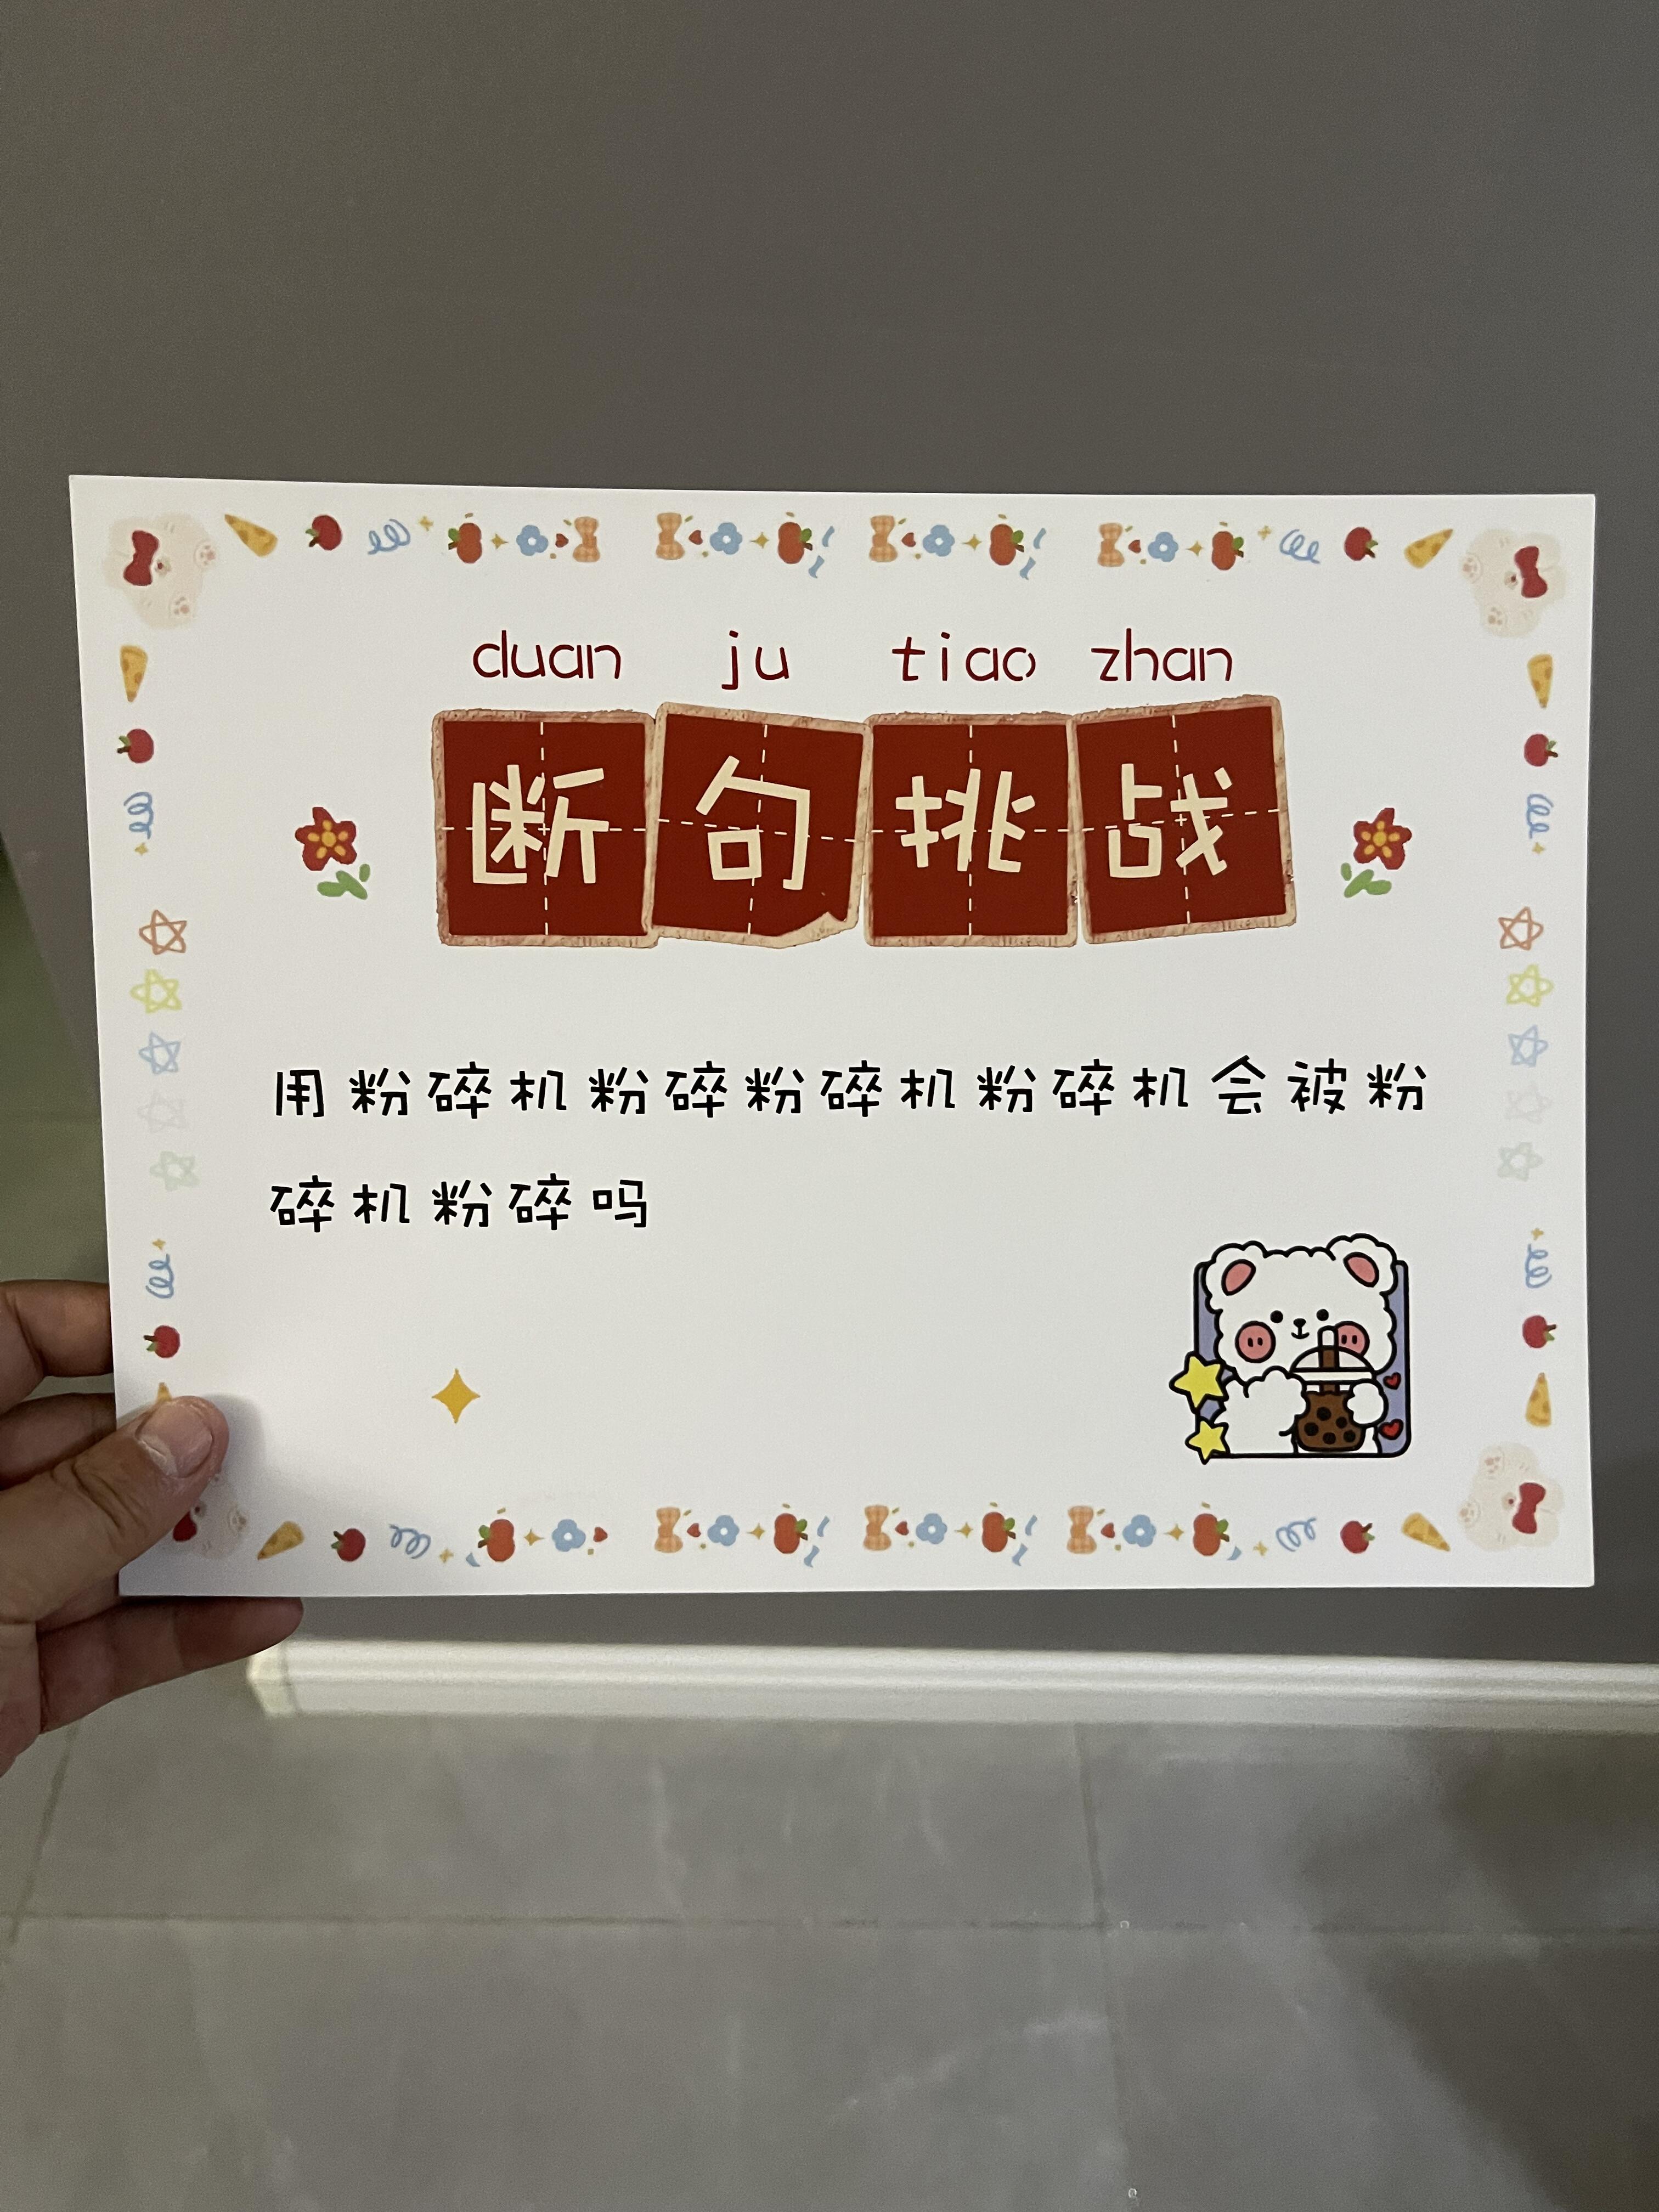 duan ju tiao zhan
断句挑战
用粉碎机粉碎粉碎机粉碎机会被粉
碎机粉碎吗